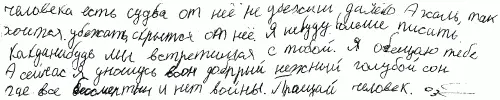 человека есть судьба от неё не убежишь далеко А жаль, так
хочется убежать, скрытся от неё. Я небуду больше писать
Когданибудь мы встретимся с тобой. Я обещаю тебе
А сейчас я уношусь в он добрый нежный голубой сон
где все бессмертны и нет войны. Прощай человек.